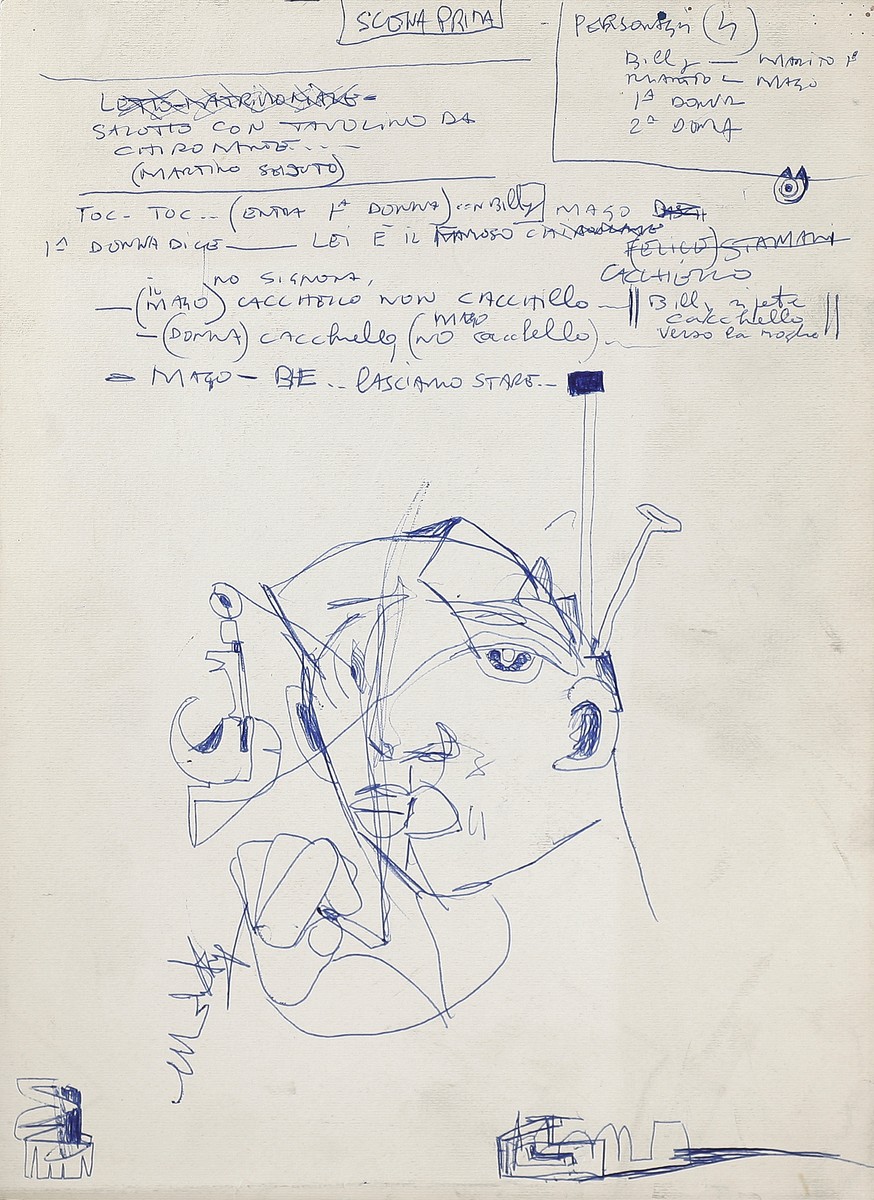 SCENA PRIMA
PERSONAGGI (4)
Billy — MARITO 1ª
MARTINO — MAGO
1ª DONNA
2ª DONNA
LETTO MATRIMONIALE
SALOTTO CON TAVOLINO DA
CHIROMANTE...
(MARTINO SEDUTO)
TOC - TOC.. (ENTRA 1ª DONNA) con Billy MAGO
1ª DONNA DICE — LEI È IL FAMOSO
(FELICE)
CACCHIELLO
NO SIGNORA,
— (il MAGO) CACCHIELLO NON CACCHIllo — Billy ripete
cacchiello
verso la moglie
— (DONNA) cacchiello (NO MAGO cacchiello)
— MAGO — BE.. lASCIAMO STARE..